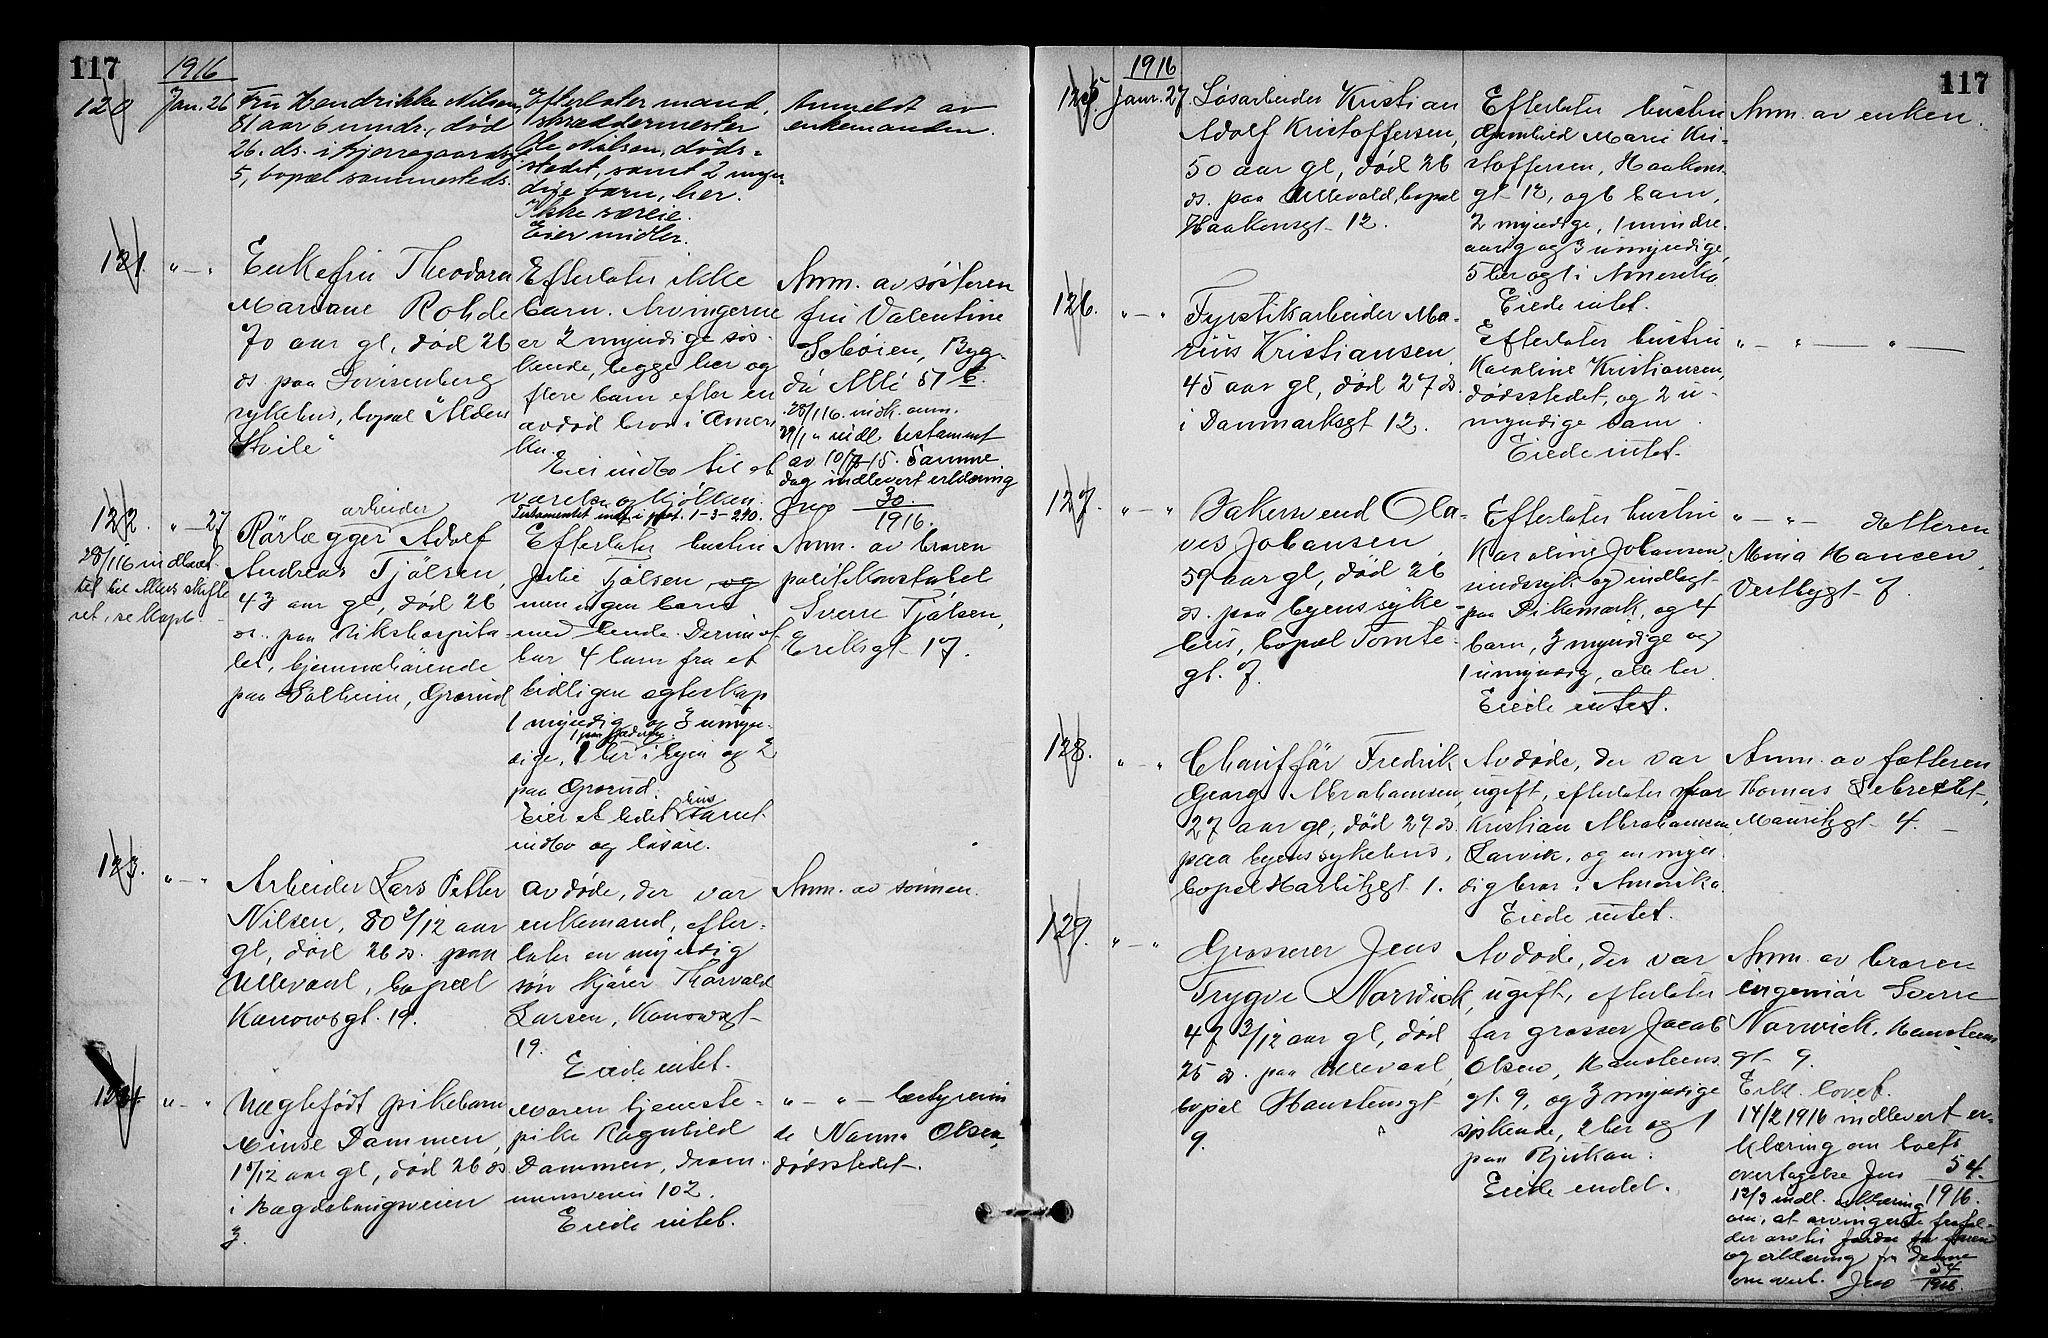 117
1916
120
Jan. 26
Fru Hendrikke Nilsen,
81 aar 6 mndr., død
26. ds. i Bjerregaardsgt
5, bopæl sammesteds.
Efterlater mand,
skræddermester
Ole Nilsen, døds-
stedet, samt 2 myn-
dige barn, her.
Ikke særeie.
Eier midler.
Anmeldt av
enkemanden.
121.
" — "
Enkefru Theodora
Mariane Rohde
70 aar gl, død 26
ds. paa Lovisenberg
sykehus, bopæl "Alders
Hvile"
Efterlater ikke
barn. Arvingerne
er 2 myndige søs-
kende, begge her og
flere barn efter en
avdød bror i Ameri
ka.
Eier indbo til et
værelse og kjøkken.
Testamentet indf. i prot. 1-3-290.
Anm. av søsteren
fru Valentine
Schøien, Byg-
dø Allé 57 b.
28/1 16. indk. anm.
29/1 " indl. testament
av 10/7 15. Samme
dag indlevert erklæring
Jno 30
1916.
122.
" — 27
28/1 16 indleve
tet til Akers skifte
ret, se kopib
arbeider
Rørlægger Adolf
Andreas Tjølsen,
43 aar gl, død 26
ds. paa Rikshospita
let, hjemmehørende
paa Solheim, Grorud
Efterlater hustru
Julie Tjølsen, og
men ingen barn
med hende. Derimot
har 4 barn fra et
tidligere egteskap
1 myndig og 3 umyn-
dige, 1 her i byen og 2
paa Grorud.
Eier et litet hus samt
indbo og løsøre.
Anm. av broren
politikonstabel
Sverre Tjølsen,
Eriksgt 17.
123.
" — "
Arbeider Lars Petter
Nilsen, 80 2/12 aar
gl, død 26 ds. paa
Ullevaal, bopæl
Kanowsgt. 19.
Avdøde, der var
enkemand, efter-
later en myndig
søn kjører Thorvald
Larsen, Kanowsgt
19.
Eiede intet.
Anm. av sønnen.
124.
" — "
Uægtefødt pikebarn
Minse Dammen,
1 5/12 aar gl, død 26 ds
i Magdeburgveien
3.
moren tjeneste-
pike Ragnhild
Dammen, Dram-
mensveien 102.
Eiede intet.
" — " — bestyrerin
de Nanna Olsen,
dødsstedet.
1916
117
125
Janr. 27.
Løsarbeider Kristian
Adolf Kristoffersen,
50 aar gl, død 26
ds. paa Ullevaal, bopæl
Haakonsgt 12.
Efterlater hustru
Gunhild Marie Kri-
stoffersen, Haakons-
gt 12, og 6 barn,
2 myndige, 1 mindre-
aarig og 3 umyndige,
5 her og 1 i Amerika
Eiede intet.
Anm. av enken.
126.
" — "
Fyrstikarbeider Ma-
rius Kristiansen,
45 aar gl, død 27 ds.
i Danmarksgt 12.
Efterlater hustru
Karoline Kristiansen,
dødsstedet, og 2 u-
myndige barn.
Eiede intet.
" — " — " —
127.
" — "
Bakersvend Ola-
ves Johansen,
59 aar gl, død 26
ds. paa byens syke-
hus, bopæl Tomte-
gt. 7.
Efterlater hustru
Karoline Johansen,
sindssyk og indlagt
paa Dikemark, og 4
barn, 3 myndige og
1 umyndig, alle her.
Eiede intet.
" — " — datteren
Mina Hansen,
Vestbygt 7.
128.
" — "
Chauffør Fredrik
Georg Abrahamsen,
27 aar gl, død 27 ds.
paa byens sykehus,
bopæl Harbitzgt 1.
Avdøde, der var
ugift, efterlater far
Kristian Abrahamsen,
Larvik, og en myn-
dig bror i Amerika.
Eiede intet.
Anm. av fætteren
Thomas Lebrecht,
Mauritzgt 4.
129.
" — "
Grosserer Jens
Trygve Norwick,
47 3/12 aar gl, død
25 ds. paa Ullevaal,
bopæl Hansteensgt
9.
Avdøde, der var
ugift, efterlater
far grosser Jacob
Olsen, Hansteens
gt. 9, og 3 myndige
søskende, 2 her og 1
paa Rjukan.
Eiede endel.
Anm. av broren
ingeniør Sverre
Norwick, Hansteens
gt 9.
Erkl. lovet.
14/2 1916 indlevert er-
klæring om boets
overtagelse Jno 54
1916.
12/3 indl. erklæring
om, at arvingerne frafal-
der arv til fordel for faren
og erklæring fra denne
om arv. Jno 54
1916.